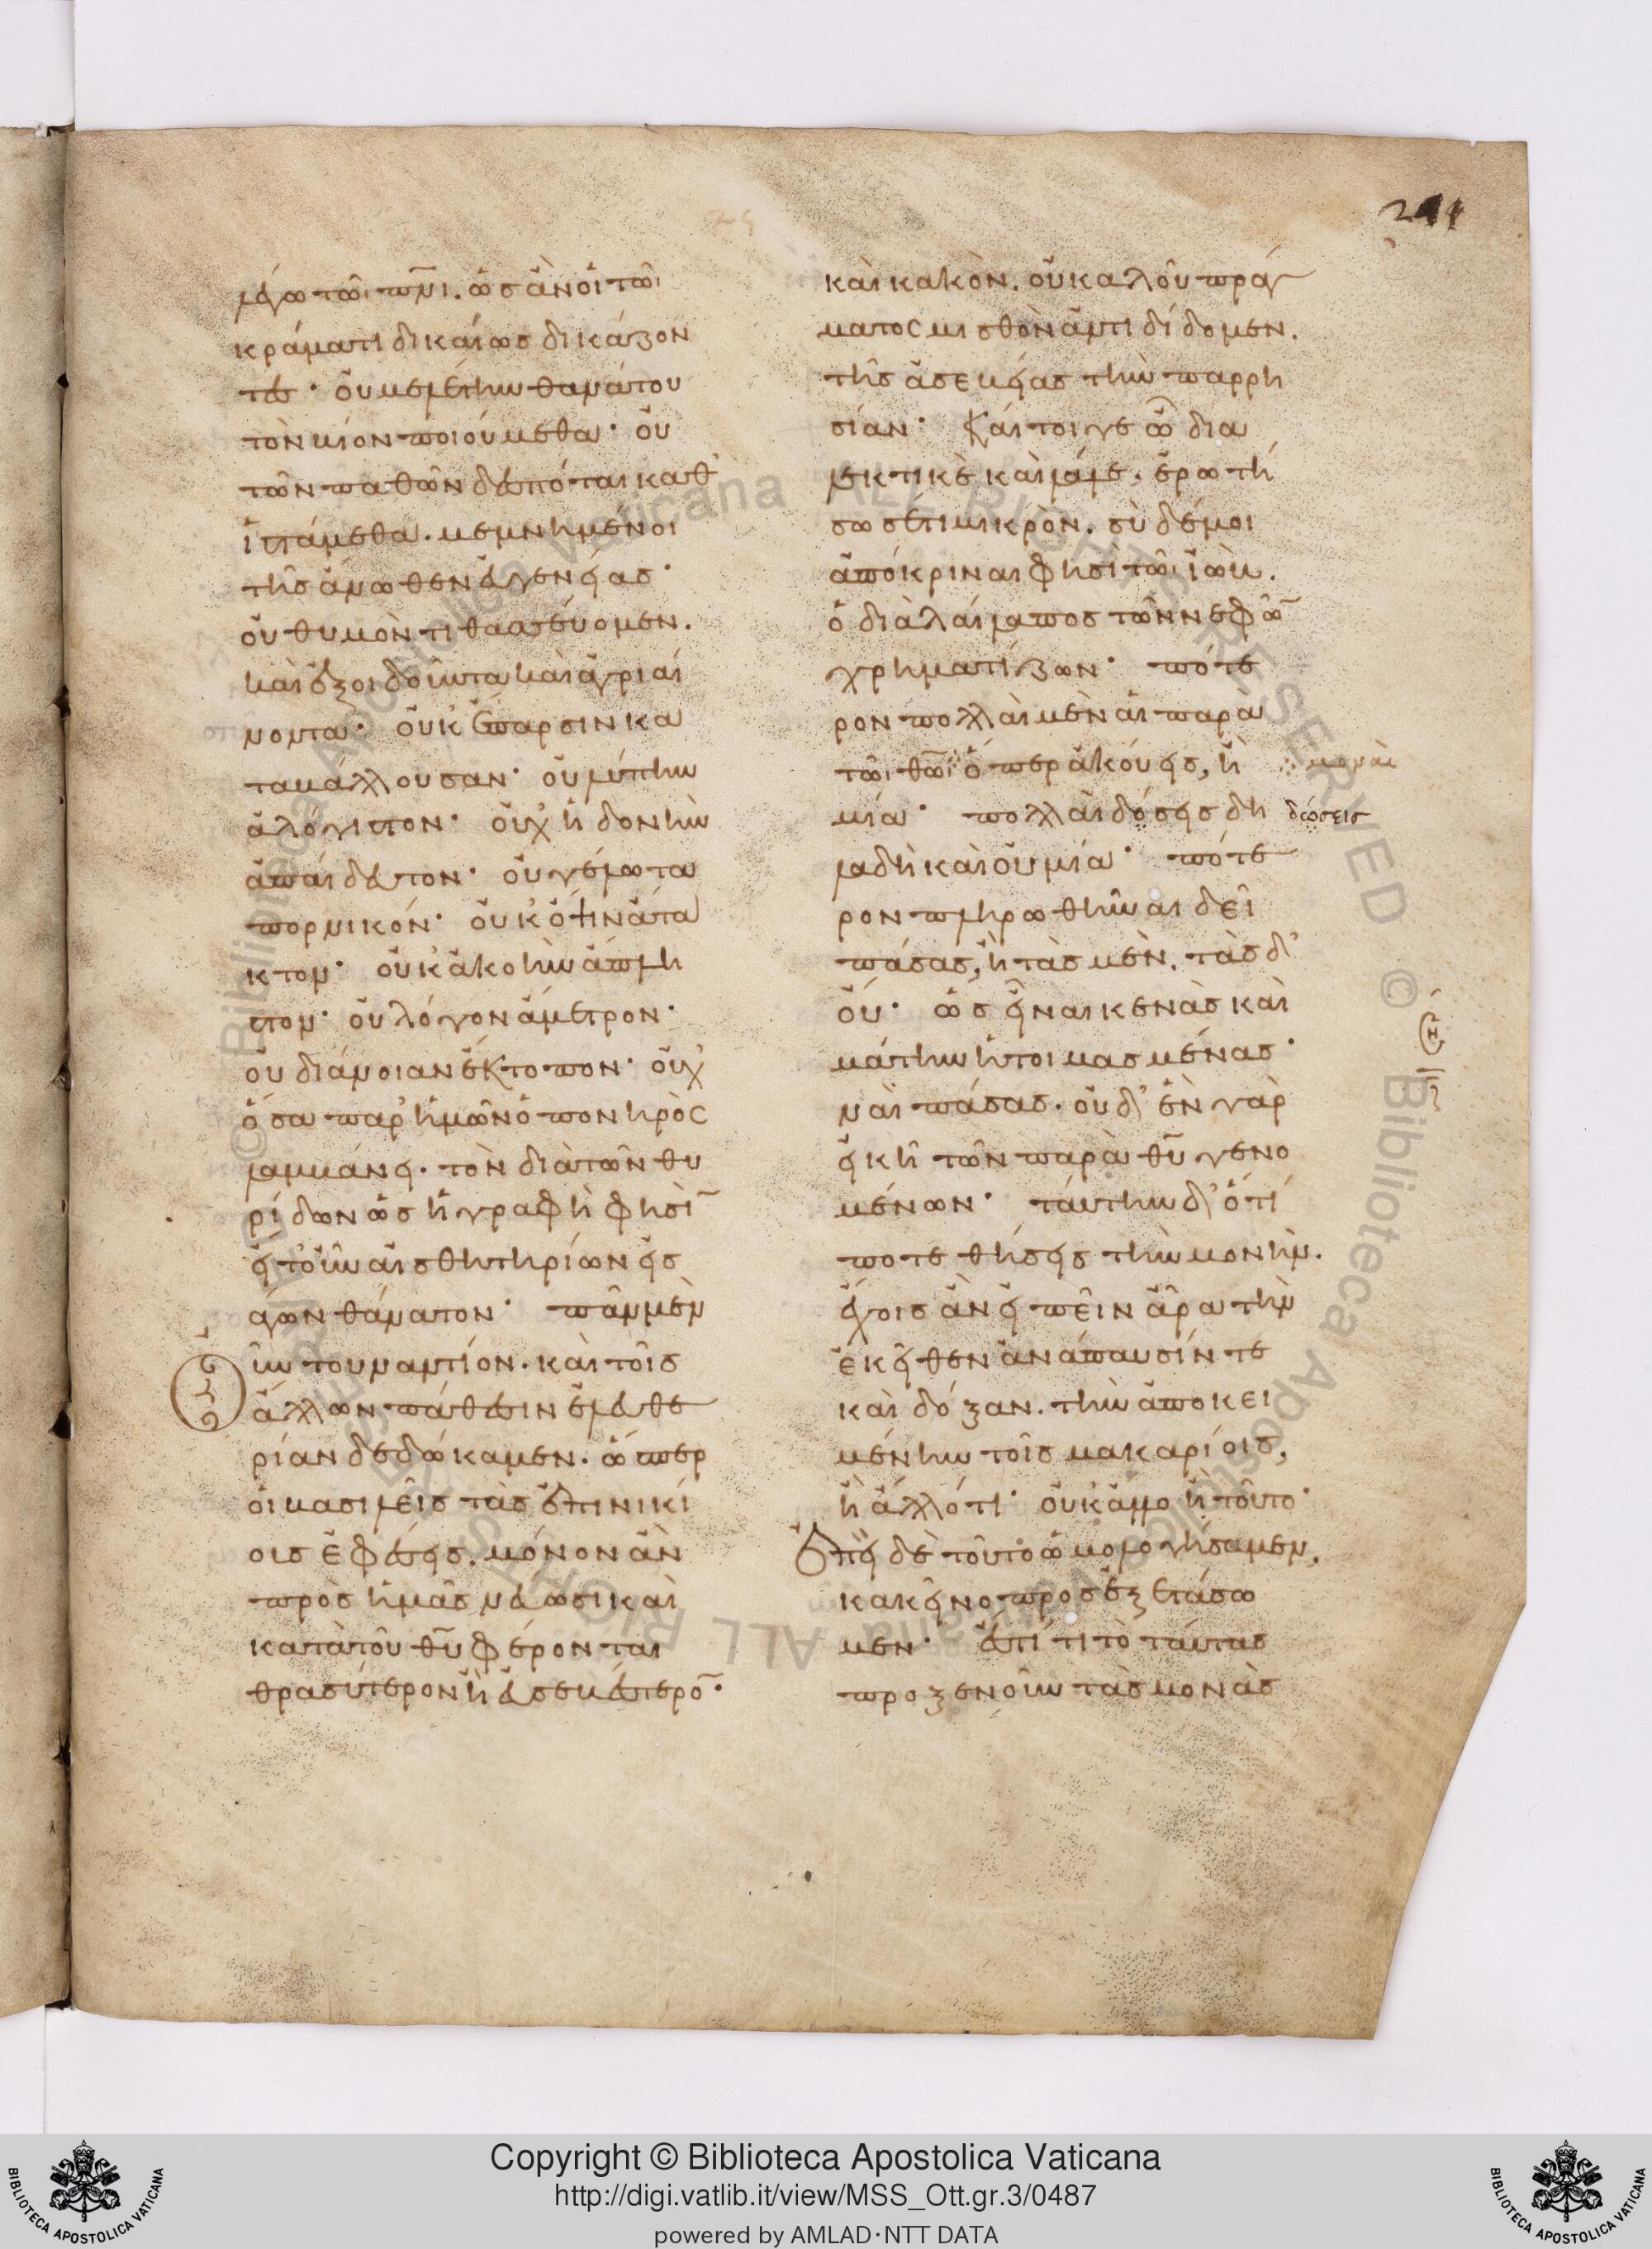 241
λέγω τῶι πν̅ι. ὡς ἂν οἱ τῶι
κράματι δικαίως δικάζον
τες· οὐ μελέτην θανάτου
τὸν βίον ποιούμεθα· οὐ
τῶν παθῶν δεσπόται καθ
ιστάμεθα. μεμνημένοι
τῆς ἄνωθεν εὐγενείας·
οὐ θυμὸν τιθασσεύομεν.
καὶ ἐξοιδοῦντα καὶ ἀγριαί
νοντα· οὐκ ἔπαρσιν κα
ταβάλλουσαν· οὐ λύπην
ἀλόγιστον· οὐχ ἡδονὴν
ἀπαίδευτον· οὐ γέλωτα
πορνικόν· οὐκ ὄψιν ἄτα
κτον· οὐκ ἀκοὴν ἄπλη
στον· οὐ λόγον ἄμετρον·
οὐ διάνοιαν ἔκτοπον· οὐχ
ὅσα παρ' ἡμῶν ὁ πονηρὸς
λαμβάνει. τὸν διὰ τῶν θυ
ρίδων ὡς ἡ γραφή φησῑ
εἴτ' οὖν αἰσθητηρίων εἰσ
άγων θάνατον· πᾶν μὲν
οὖν τουναντίον. καὶ τοῖς
ἄλλων πάθεσιν ἐλευθε
ρίαν δεδώκαμεν. ὥσπερ
οἱ βασιλεῖς τὰς ἐπινικί
οις ἐφέσεις. μόνον ἂν
πρὸς ἡμᾶς νεύωσι καὶ
κατὰ τοῦ θυ̅ φέρονται
θρασύτερον ἢ εὐσεβέστερο̅·
καὶ κακὸν. οὐ καλοῦ πράγ
ματος μισθὸν ἀντιδίδομεν.
τῆς ἀσεβείας τὴν παρρη
σίαν· Καίτοιγε ὦ δια
λεκτικὲ καὶ λάλε. ἐρωτή
σω σέ τι μικρὸν. σὺ δέ μοι
ἀπόκριναι φησὶ τῶι ἰώβ.
ὁ διὰ λαίλαπος τῶν νεφῶ̅
χρηματίζων· πότε
ρον πολλαὶ μὲν αἱ παρὰ
τῶι θω̅ι ὅπερ ἀκούεις, ἢ
μοναὶ
μία· πολλαὶ δόσεις δη
δώσεις
λαδὴ καὶ οὐ μία· πότε
ρον πληρωθῆναι δεῖ
πάσας, ἢ τὰς μὲν. τὰς δ'
οὔ· ὡς εἶναι κενὰς καὶ
μάτην ἡτοιμασμένας·
ναὶ πάσας. οὐδ' ἓν γὰρ
εἰκῆ τῶν παρὰ θυ̅ γενο
μένων· ταύτην δ' ὅ τί
ποτε θήσεις τὴν μονήν.
ἔχοις ἂν εἰπεῖν ἆρα τὴν
ἐκεῖθεν ἀνάπαυσίν τε
καὶ δόξαν. τὴν ἀποκει
μένην τοῖς μακαρίοις,
ἢ ἄλλό τι· οὐκ ἄλλο ἢ τοῦτο·
Ἐπεὶ δὲ τοῦτο ὡμολογήσαμεν,
κἀκεῖνο προσεξετάσω
μεν· ἔστί τι τὸ ταύτας
προξενοῦν τὰς μονὰς
Copyright © Biblioteca Apostolica Vaticana
http://digi.vatlib.it/view/MSS_Ott.gr.3/0487
powered by AMLAD·NTT DATA